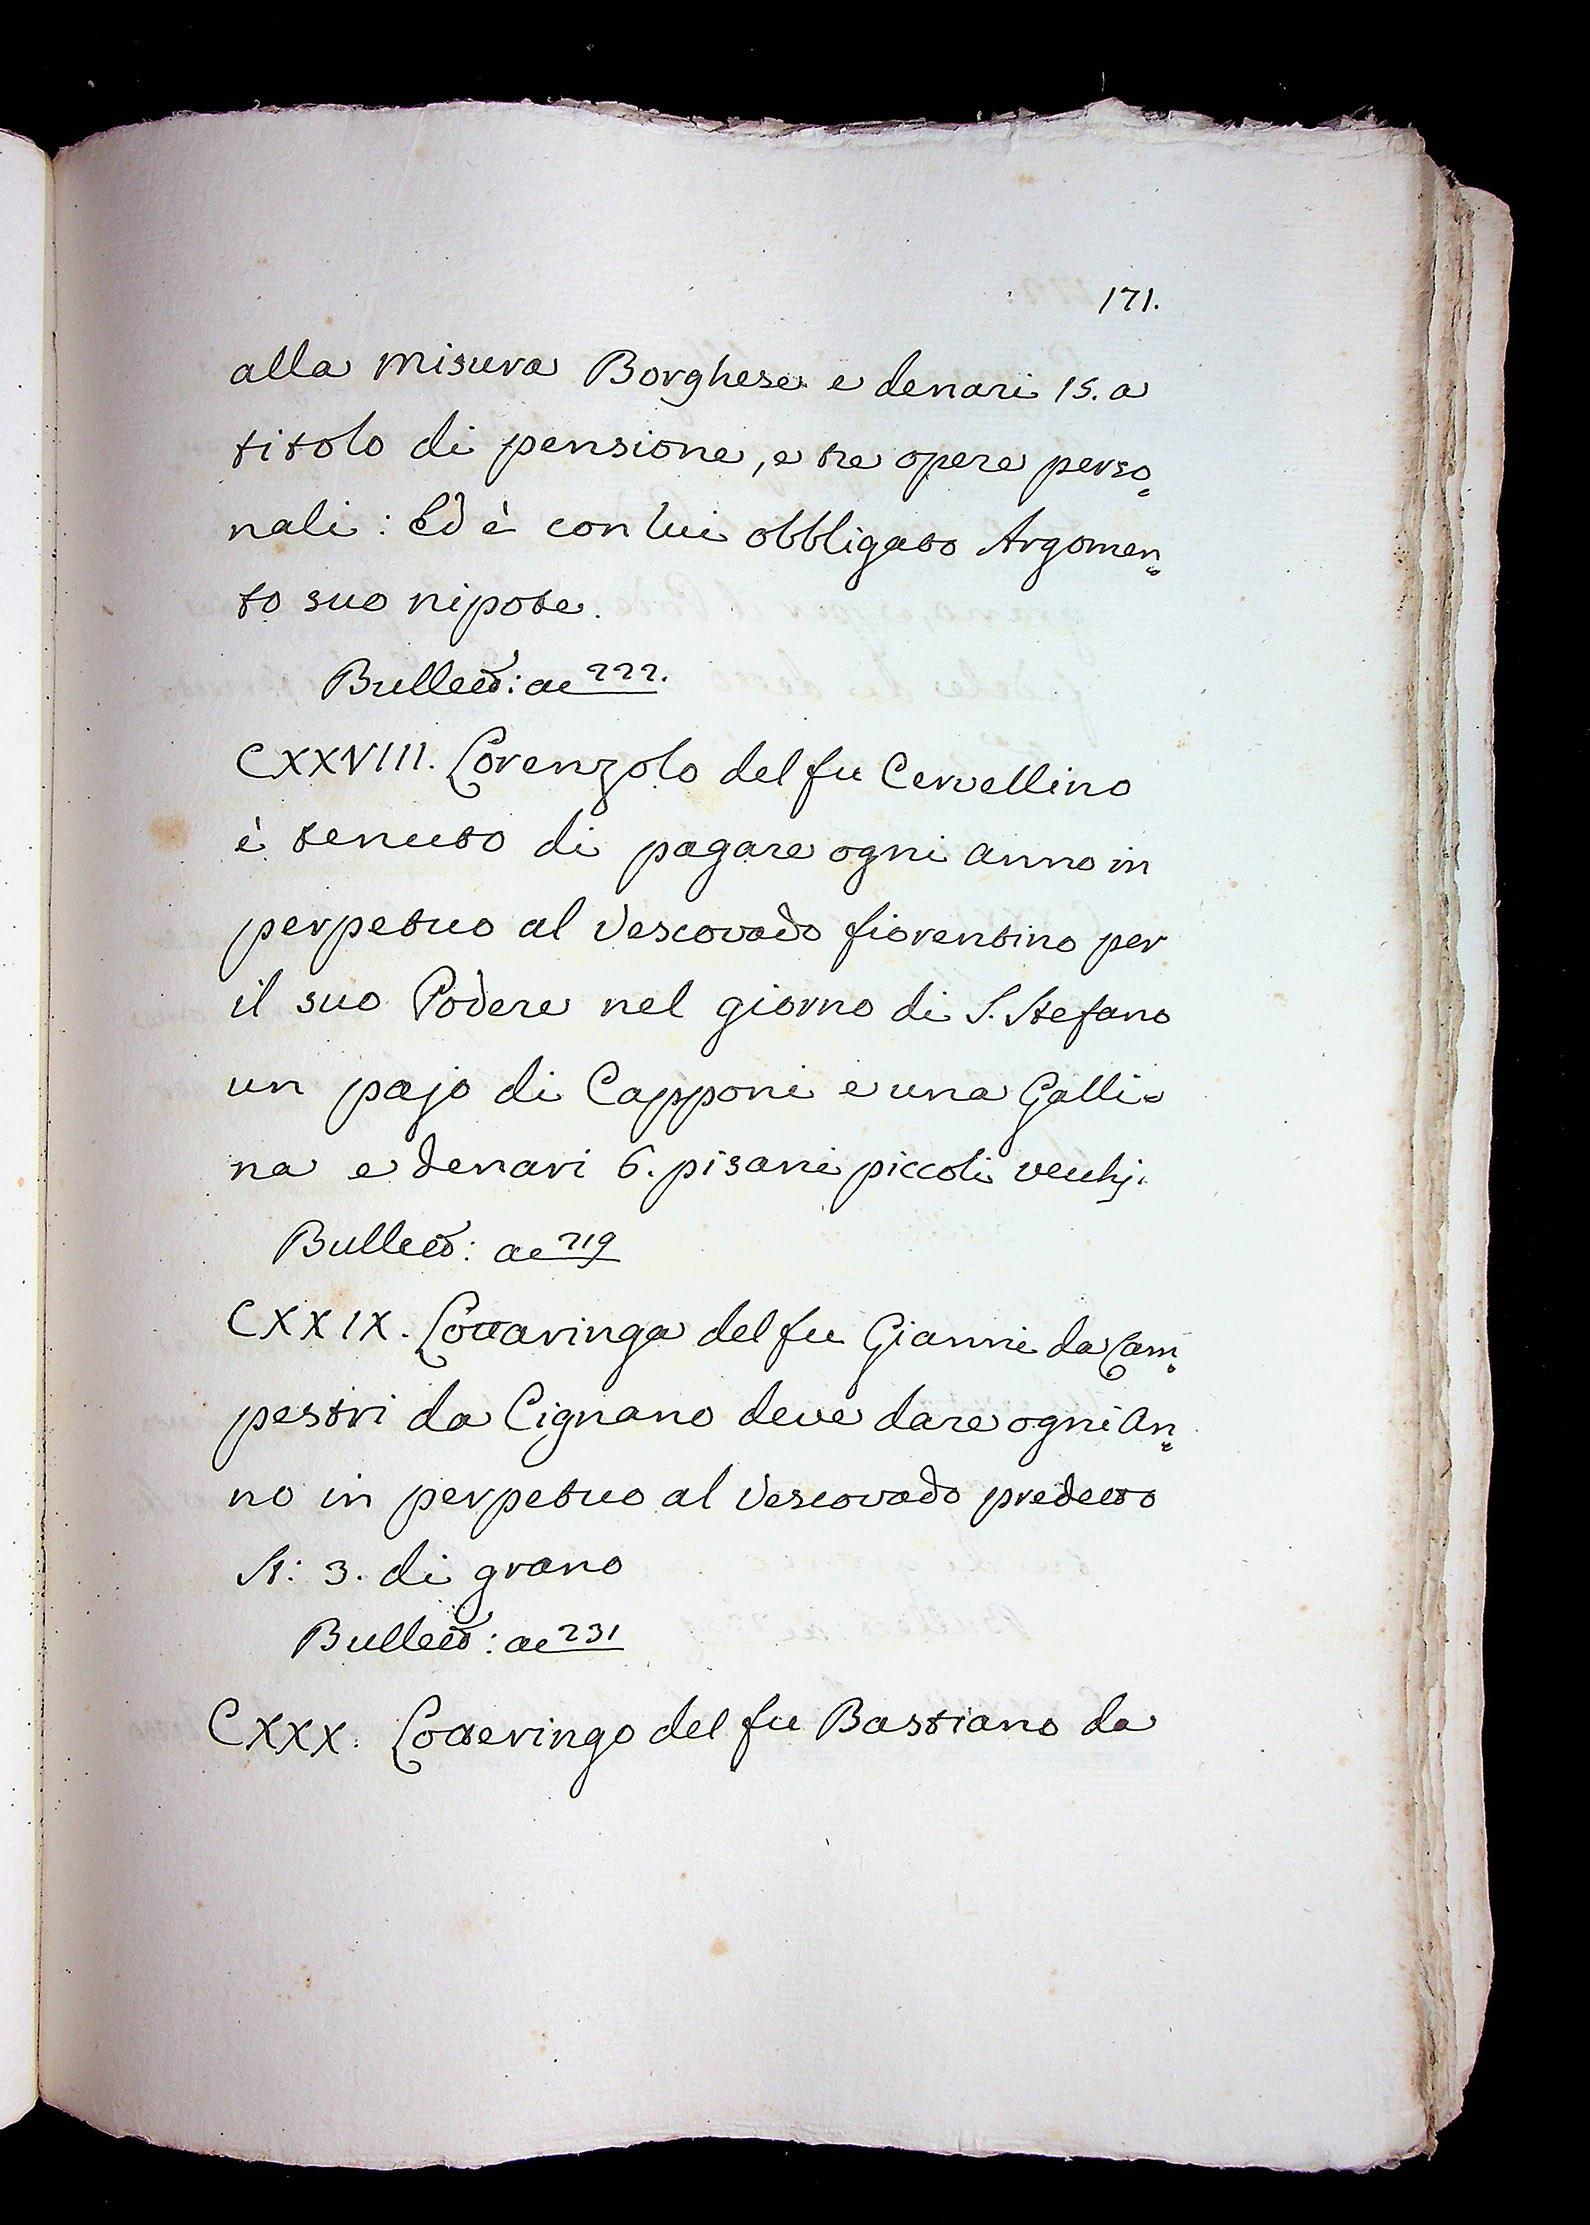 171.
alla misura Borghese e denari 15. a
titolo di pensione, e tre opere perso=
nali: Ed è con lui obbligato Argomen=
to suo nipote.
Bullett: a c 222.
CXXVIII. Lorenzolo del fu Cervellino
è tenuto di pagare ogni anno in
perpetuo al Vescovado fiorentino per
il suo Podere nel giorno di S. Stefano
un pajo di Capponi e una Galli=
na e denari 6. pisani piccoli vecchj.
Bullett: a c 219
CXXIX. Lottaringa del fu Gianni da Cam=
pestri da Cignano deve dare ogni An=
no in perpetuo al Vescovado predetto
St: 3. di grano
Bullett: a c 231
CXXX. Lotteringo del fu Bastiano da